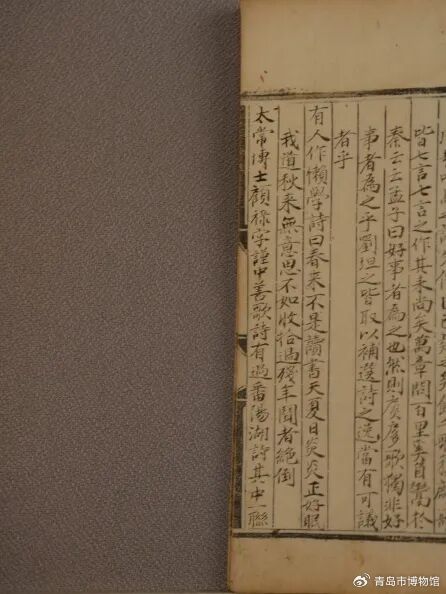 皆七言七言之作其来尚矣萬章問百里奚自鬻於
秦云云孟子曰好事者為之也然則扊扅歌獨非好
事者為之乎劉坦之皆取以補選詩之逸當有可議
者乎
有人作懶學詩曰春来不是讀書天夏日炎炎正好眠
我道秋来無意思不如收拾過殘年聞者絶倒
太常博士顧祿字謹中善歌詩有過番陽湖詩其中一聯
@青岛市博物馆